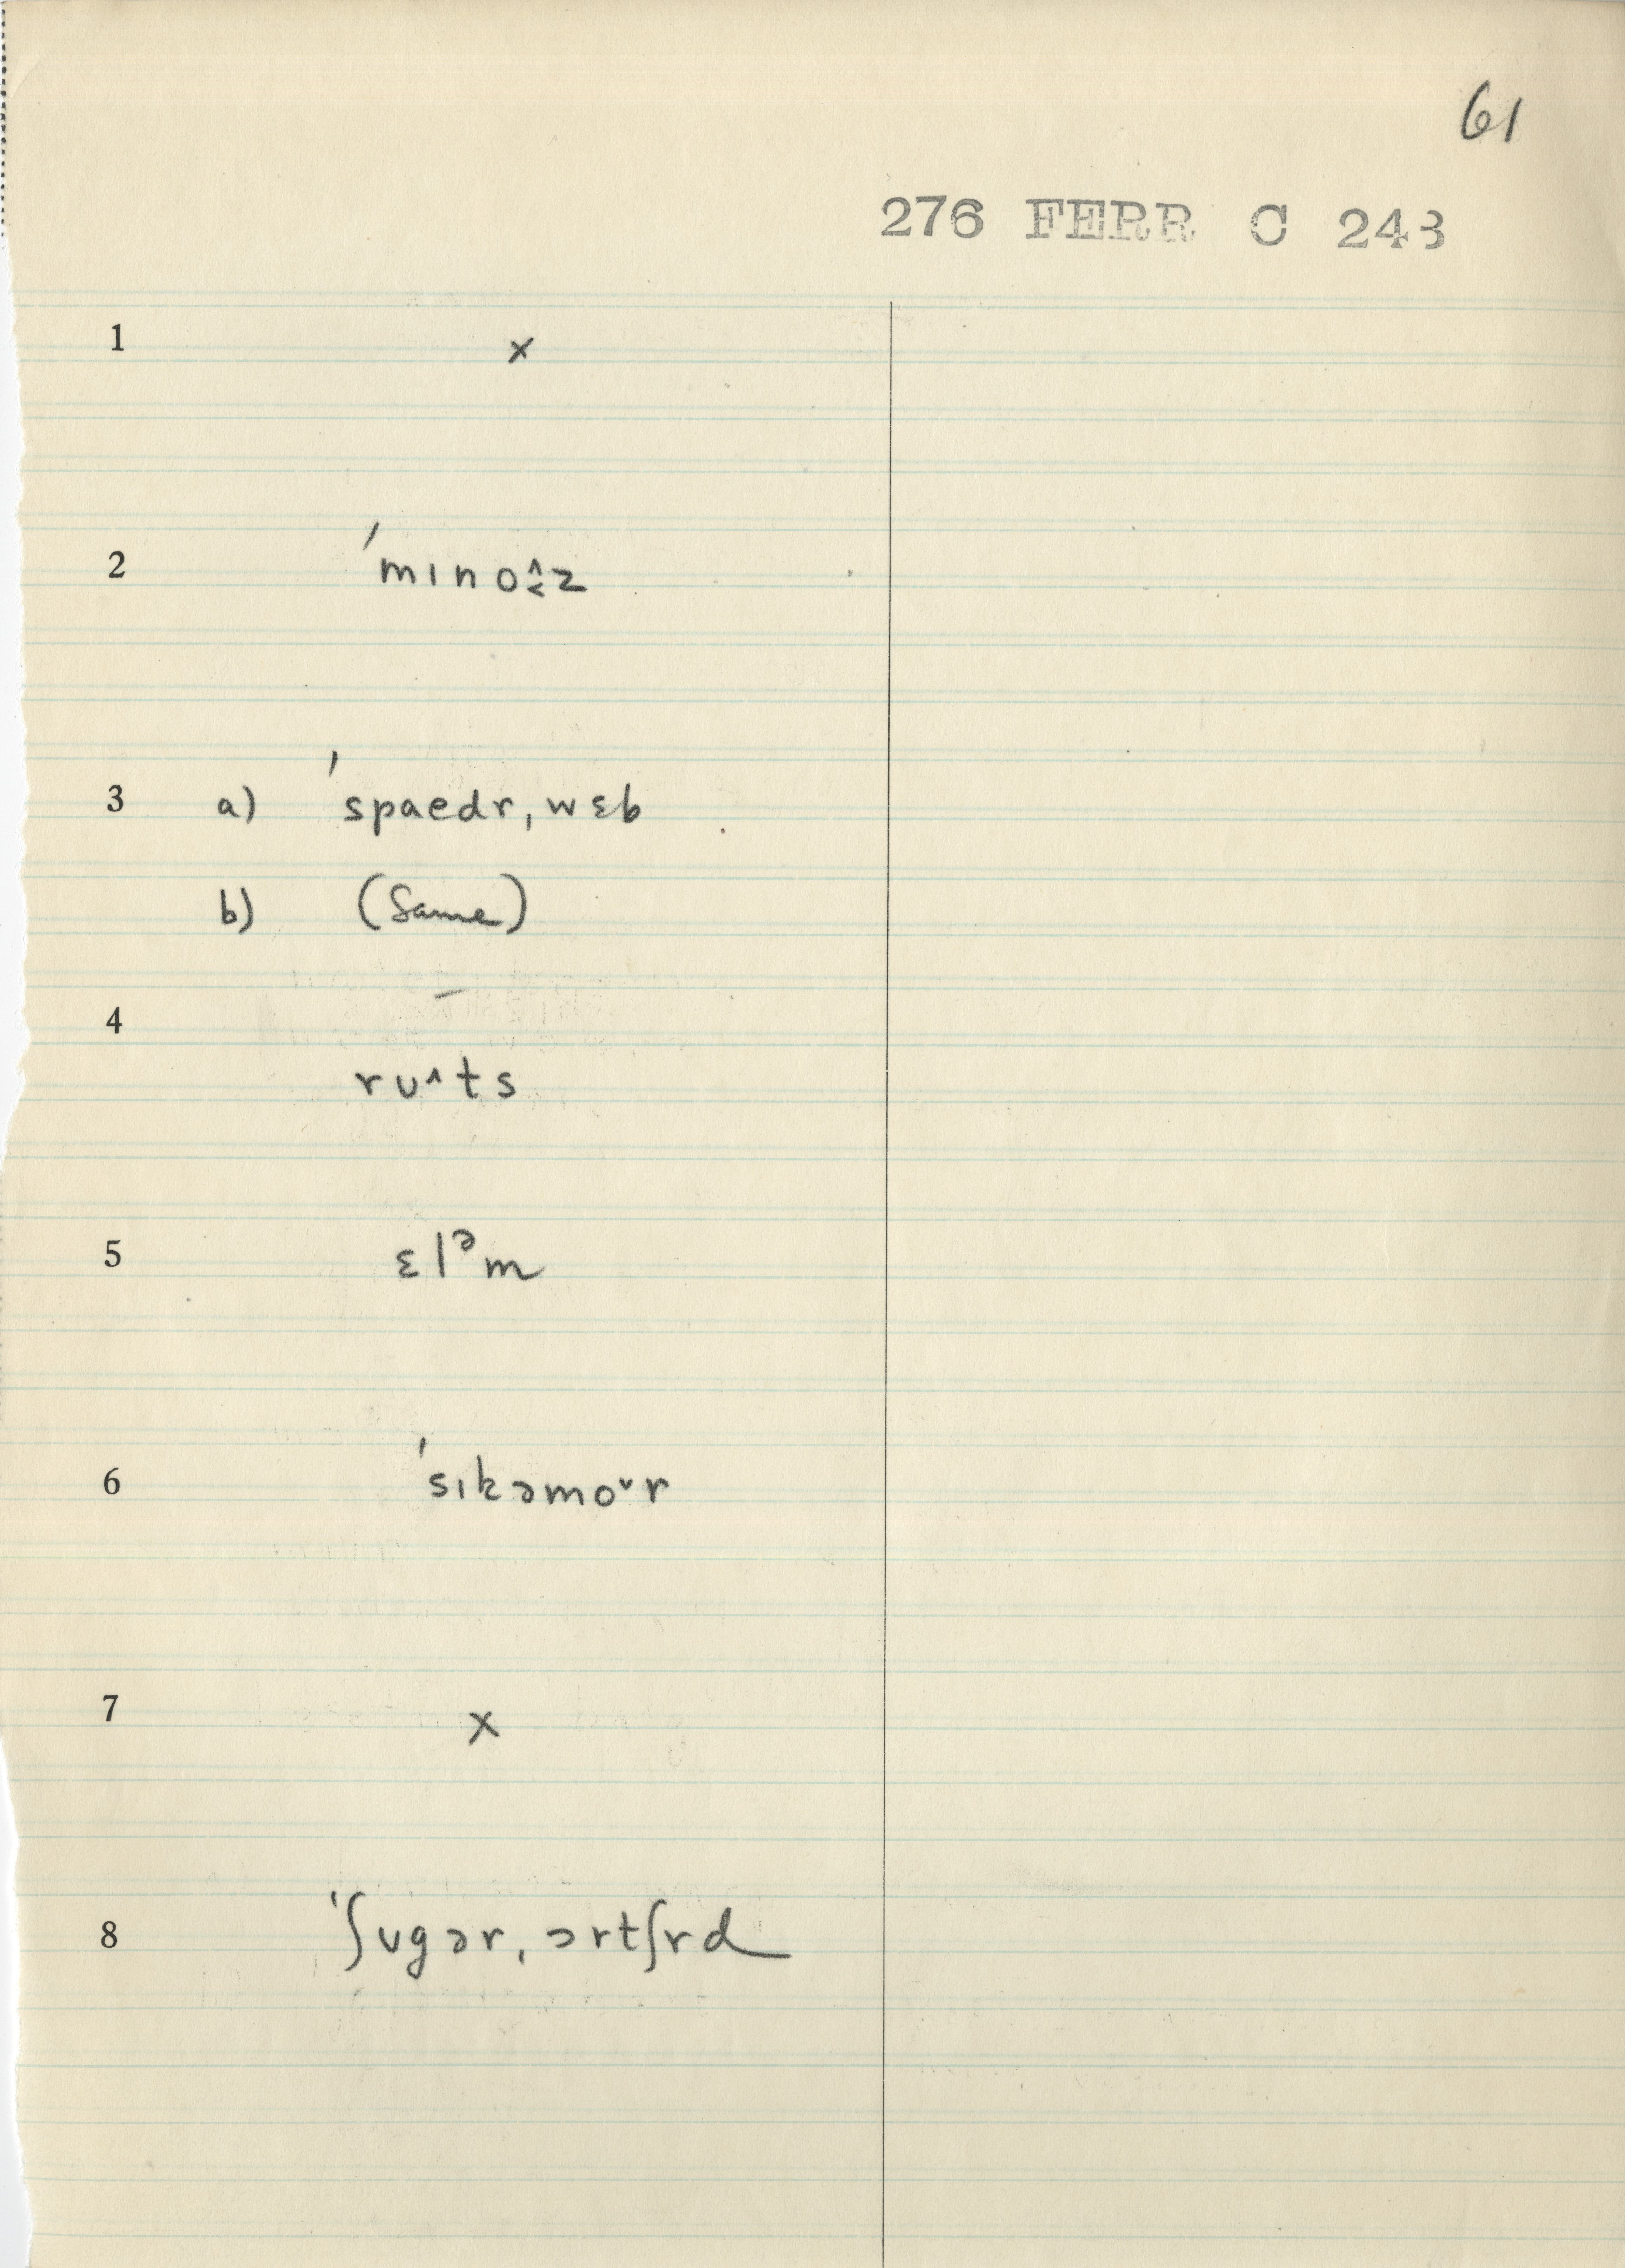 61
276 FERR C 243
1 x
2 ˈmɪno˄˱z
3 a) ˈspaedr,wɛb
b) (Same)
4 ru^ts
5 ɛlᵊm
6 ˈsɪkəmo˅r
7 x
8 ˈʃugər,ɔrtʃrd